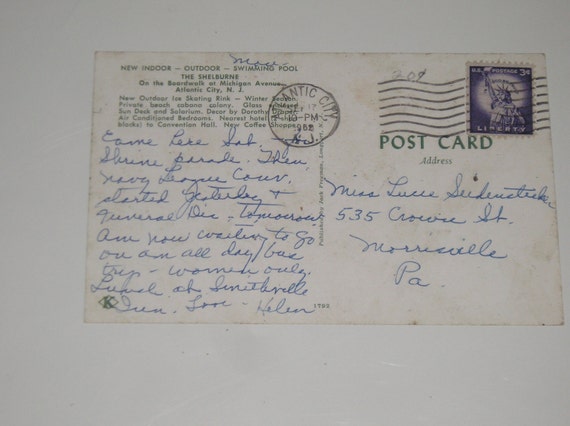 Mon.
NEW INDOOR — OUTDOOR — SWIMMING POOL
THE SHELBURNE
On the Boardwalk at Michigan Avenue
Atlantic City, N. J.
New Outdoor Ice Skating Rink — Winter Season
Private beach cabana colony. Glass
Sun Desk and Solarium. Decor by Dorothy
Air Conditioned Bedrooms. Nearest hotel
blocks) to Convention Hall. New Coffee Shoppe
Came here Sat. to
Shrine parade. Then
Navy League Conv.
started yesterday &
general Dis - tomorrow
Am now waiting to go
on an all day bus
trip - women only.
Lunch at Smithville
Inn. Love - Helen
K
1792
ATLANTIC CITY
PM
N. J.
20¢
U.S. POSTAGE 3¢
LIBERTY
POST CARD
Address
Miss Lucie Seidensticker
535 Crown St.
Morrisville
Pa.